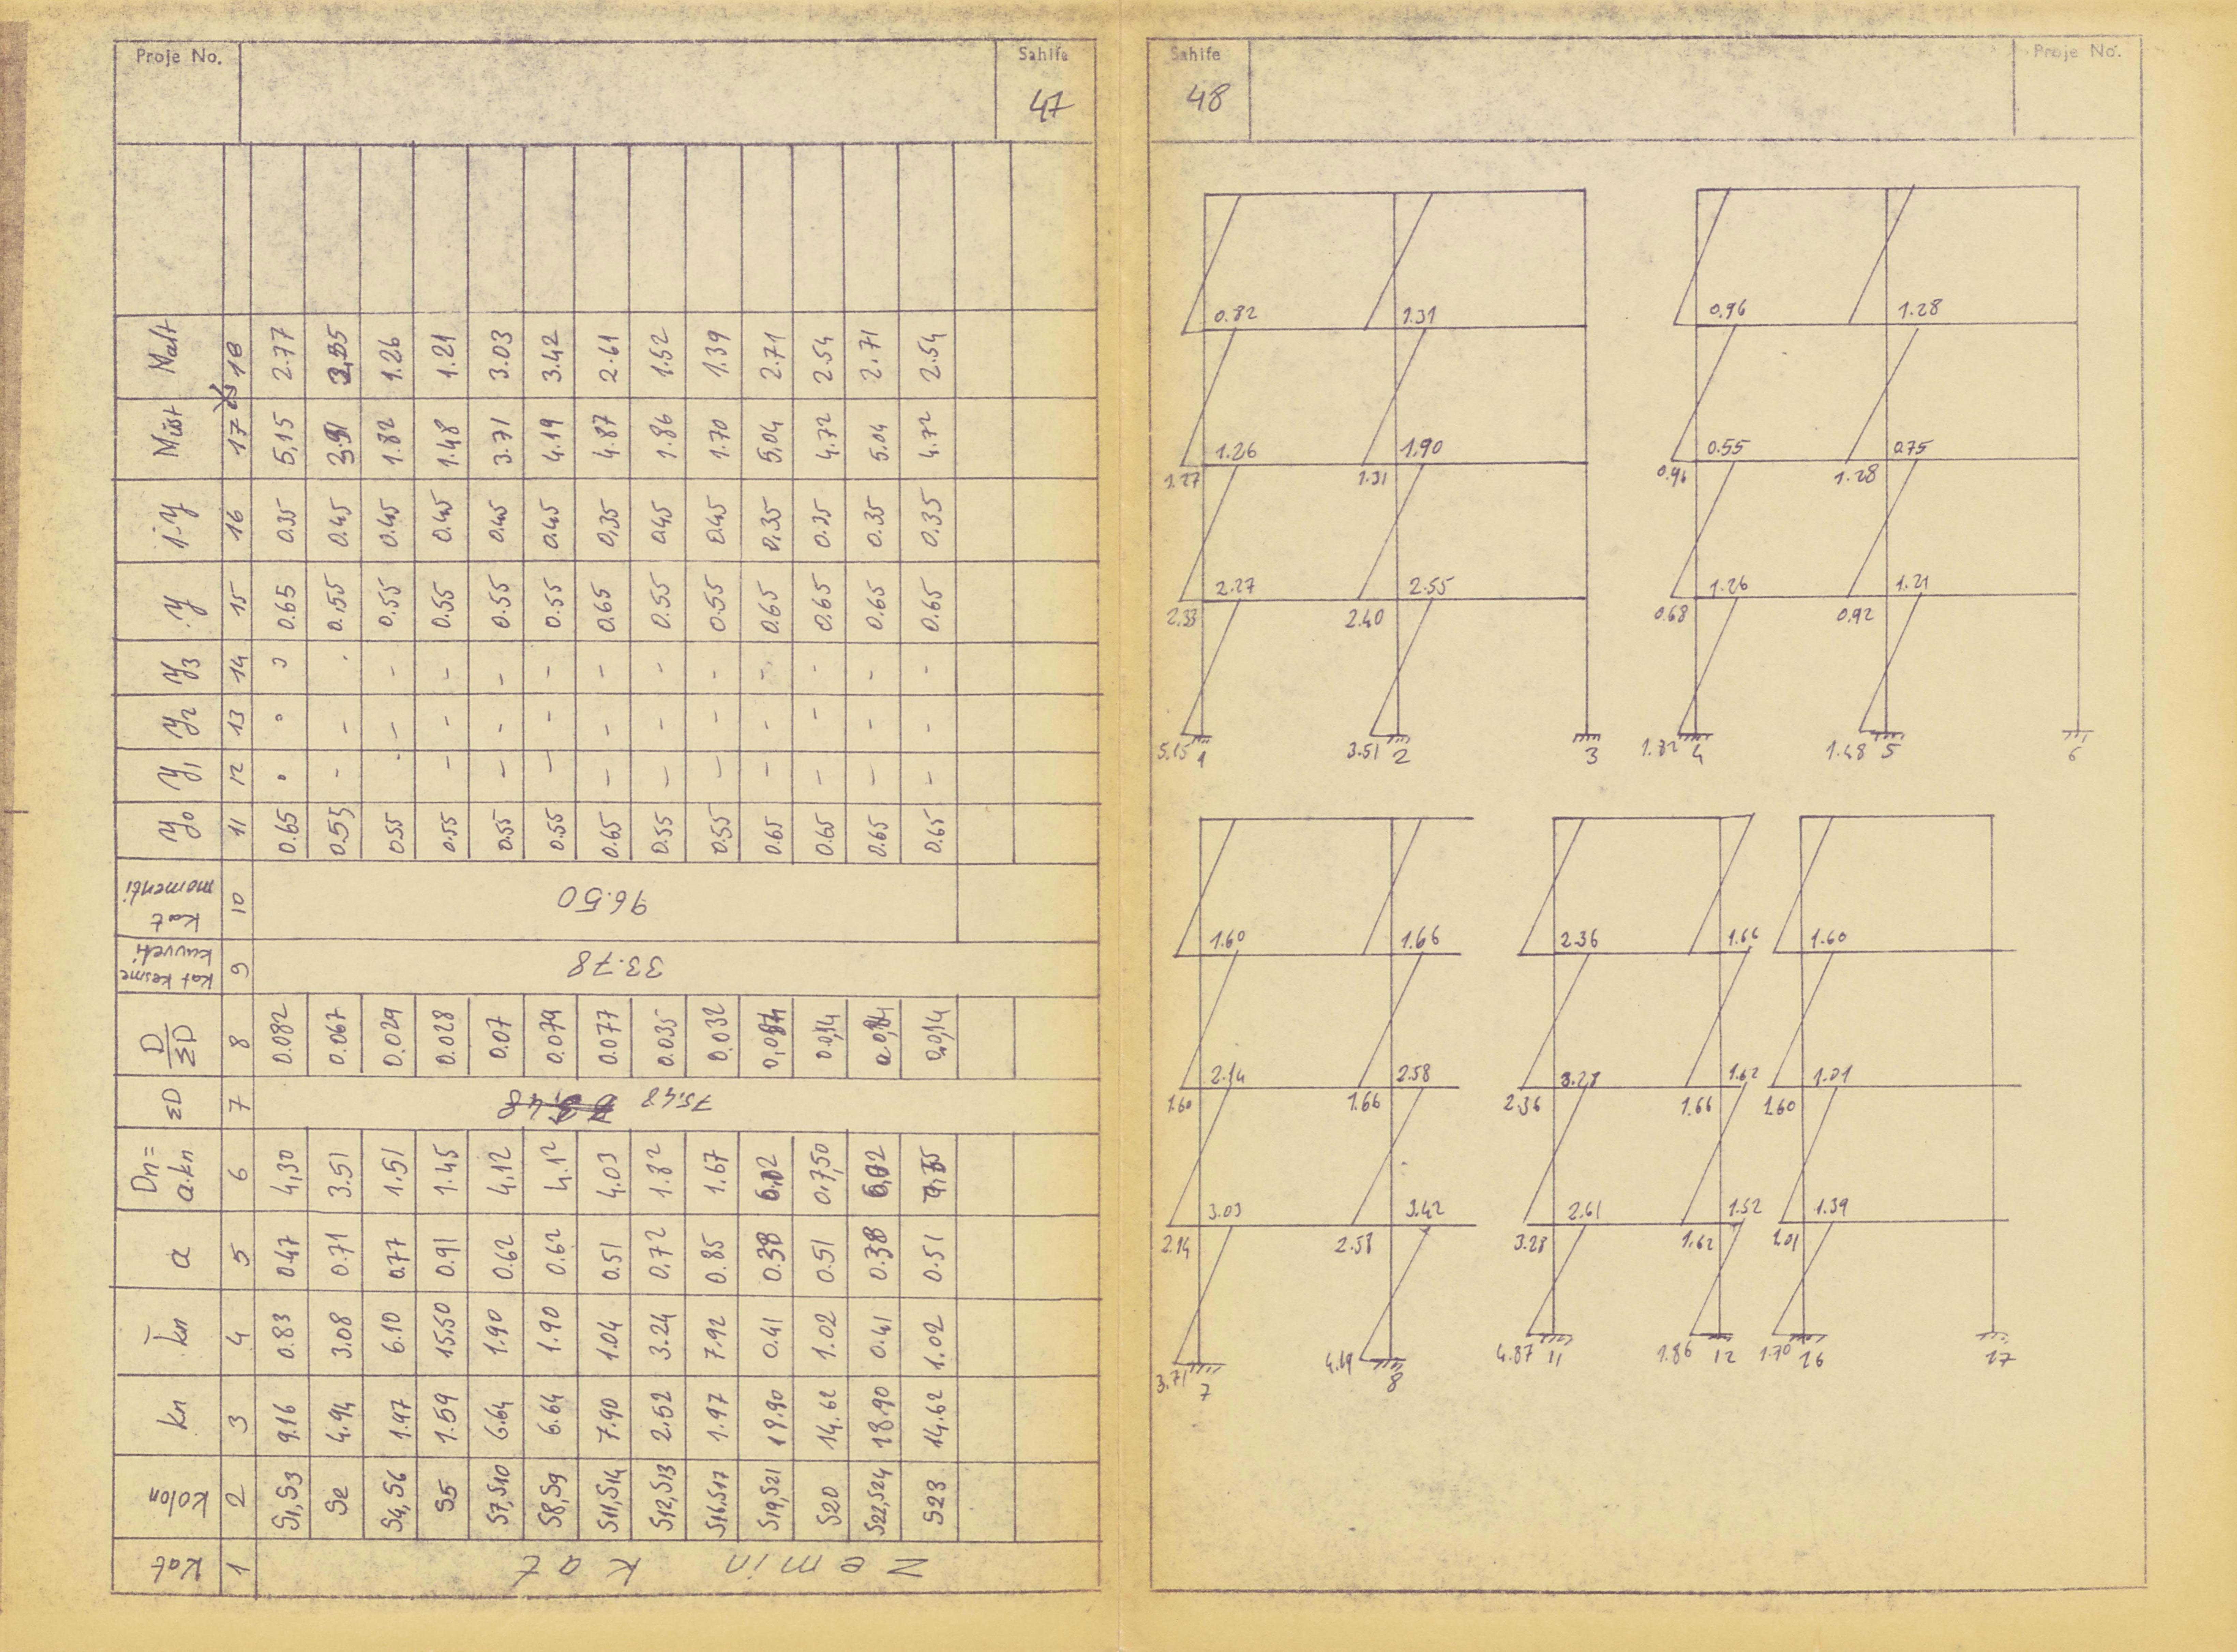 Proje No.
Sahife
47
Kat Kolon kn k̄n a Dn= a.kn ΣD D/ΣD Kat kesme kuvveti Kat momenti y₀ y₁ y₂ y₃ y 1-y Müst Malt
1 2 3 4 5 6 7 8 9 10 11 12 13 14 15 16 17 18
Zemin Kat
75.48
33.78
96.50
S1,S3 9.16 0.83 0.47 4,30 0.082 0.65 0.65 0.35 5,15 2.77
S2 4.94 3.08 0.71 3.51 0.067 0.55 - - 0.55 0.45
S4,S6 1.97 6.10 0.77 1.51 0.029 0.55 - - - 0.55 0.45 1.82 1.26
S5 1.59 15.50 0.91 1.45 0.028 0.55 - - - 0.55 0.45 1.48 1.21
S7,S10 6.64 1.90 0.62 4,12 0.07 0.55 - - - 0.55 0.45 3.71 3.03
S8,S9 6.64 1.90 0.62 4.12 0.079 0.55 - - - 0.55 0.45 4.19 3.42
S11,S14 7.90 1.04 0.51 4.03 0.077 0.65 - - - 0.65 0,35 4.87 2.61
S12,S13 2.52 3.24 0,72 1.82 0.035 0.55 - - - 0.55 0.45 1.86 1.52
S16,S17 1.97 7.92 0.85 1.67 0.032 0.55 - - - 0.55 0.45 1.70 1.39
S19,S21 0.41 0.38 0.65 - - - 0.65 0.35 5,04 2.71
S20 14.62 1.02 0.51 0.65 - - - 0.65 0.35 4.72 2.54
S22,S24 18.90 0.41 0.38 0.65 - - - 0.65 0.35 5.04 2.71
S23 14.62 1.02 0.51 0.65 - - - 0.65 0.35 4.72 2.54
Sahife
48
Proje No.
0.82 1.31 0.96 1.28
1.26 1.90 0.55 0.75
1.27 1.31 0.96 1.28
2.27 2.55 1.26 1.21
2.33 2.40 0.68 0.92
5.15 1 3.51 2 3 1.82 4 1.48 5 6
1.60 1.66 2.36 1.66 1.60
2.14 2.58 3.28 1.62 1.01
1.60 1.66 2.36 1.66 1.60
3.03 3.42 2.61 1.52 1.39
2.14 2.58 3.28 1.62 1.01
3.71 7 4.19 8 4.87 11 1.86 12 1.70 16 17